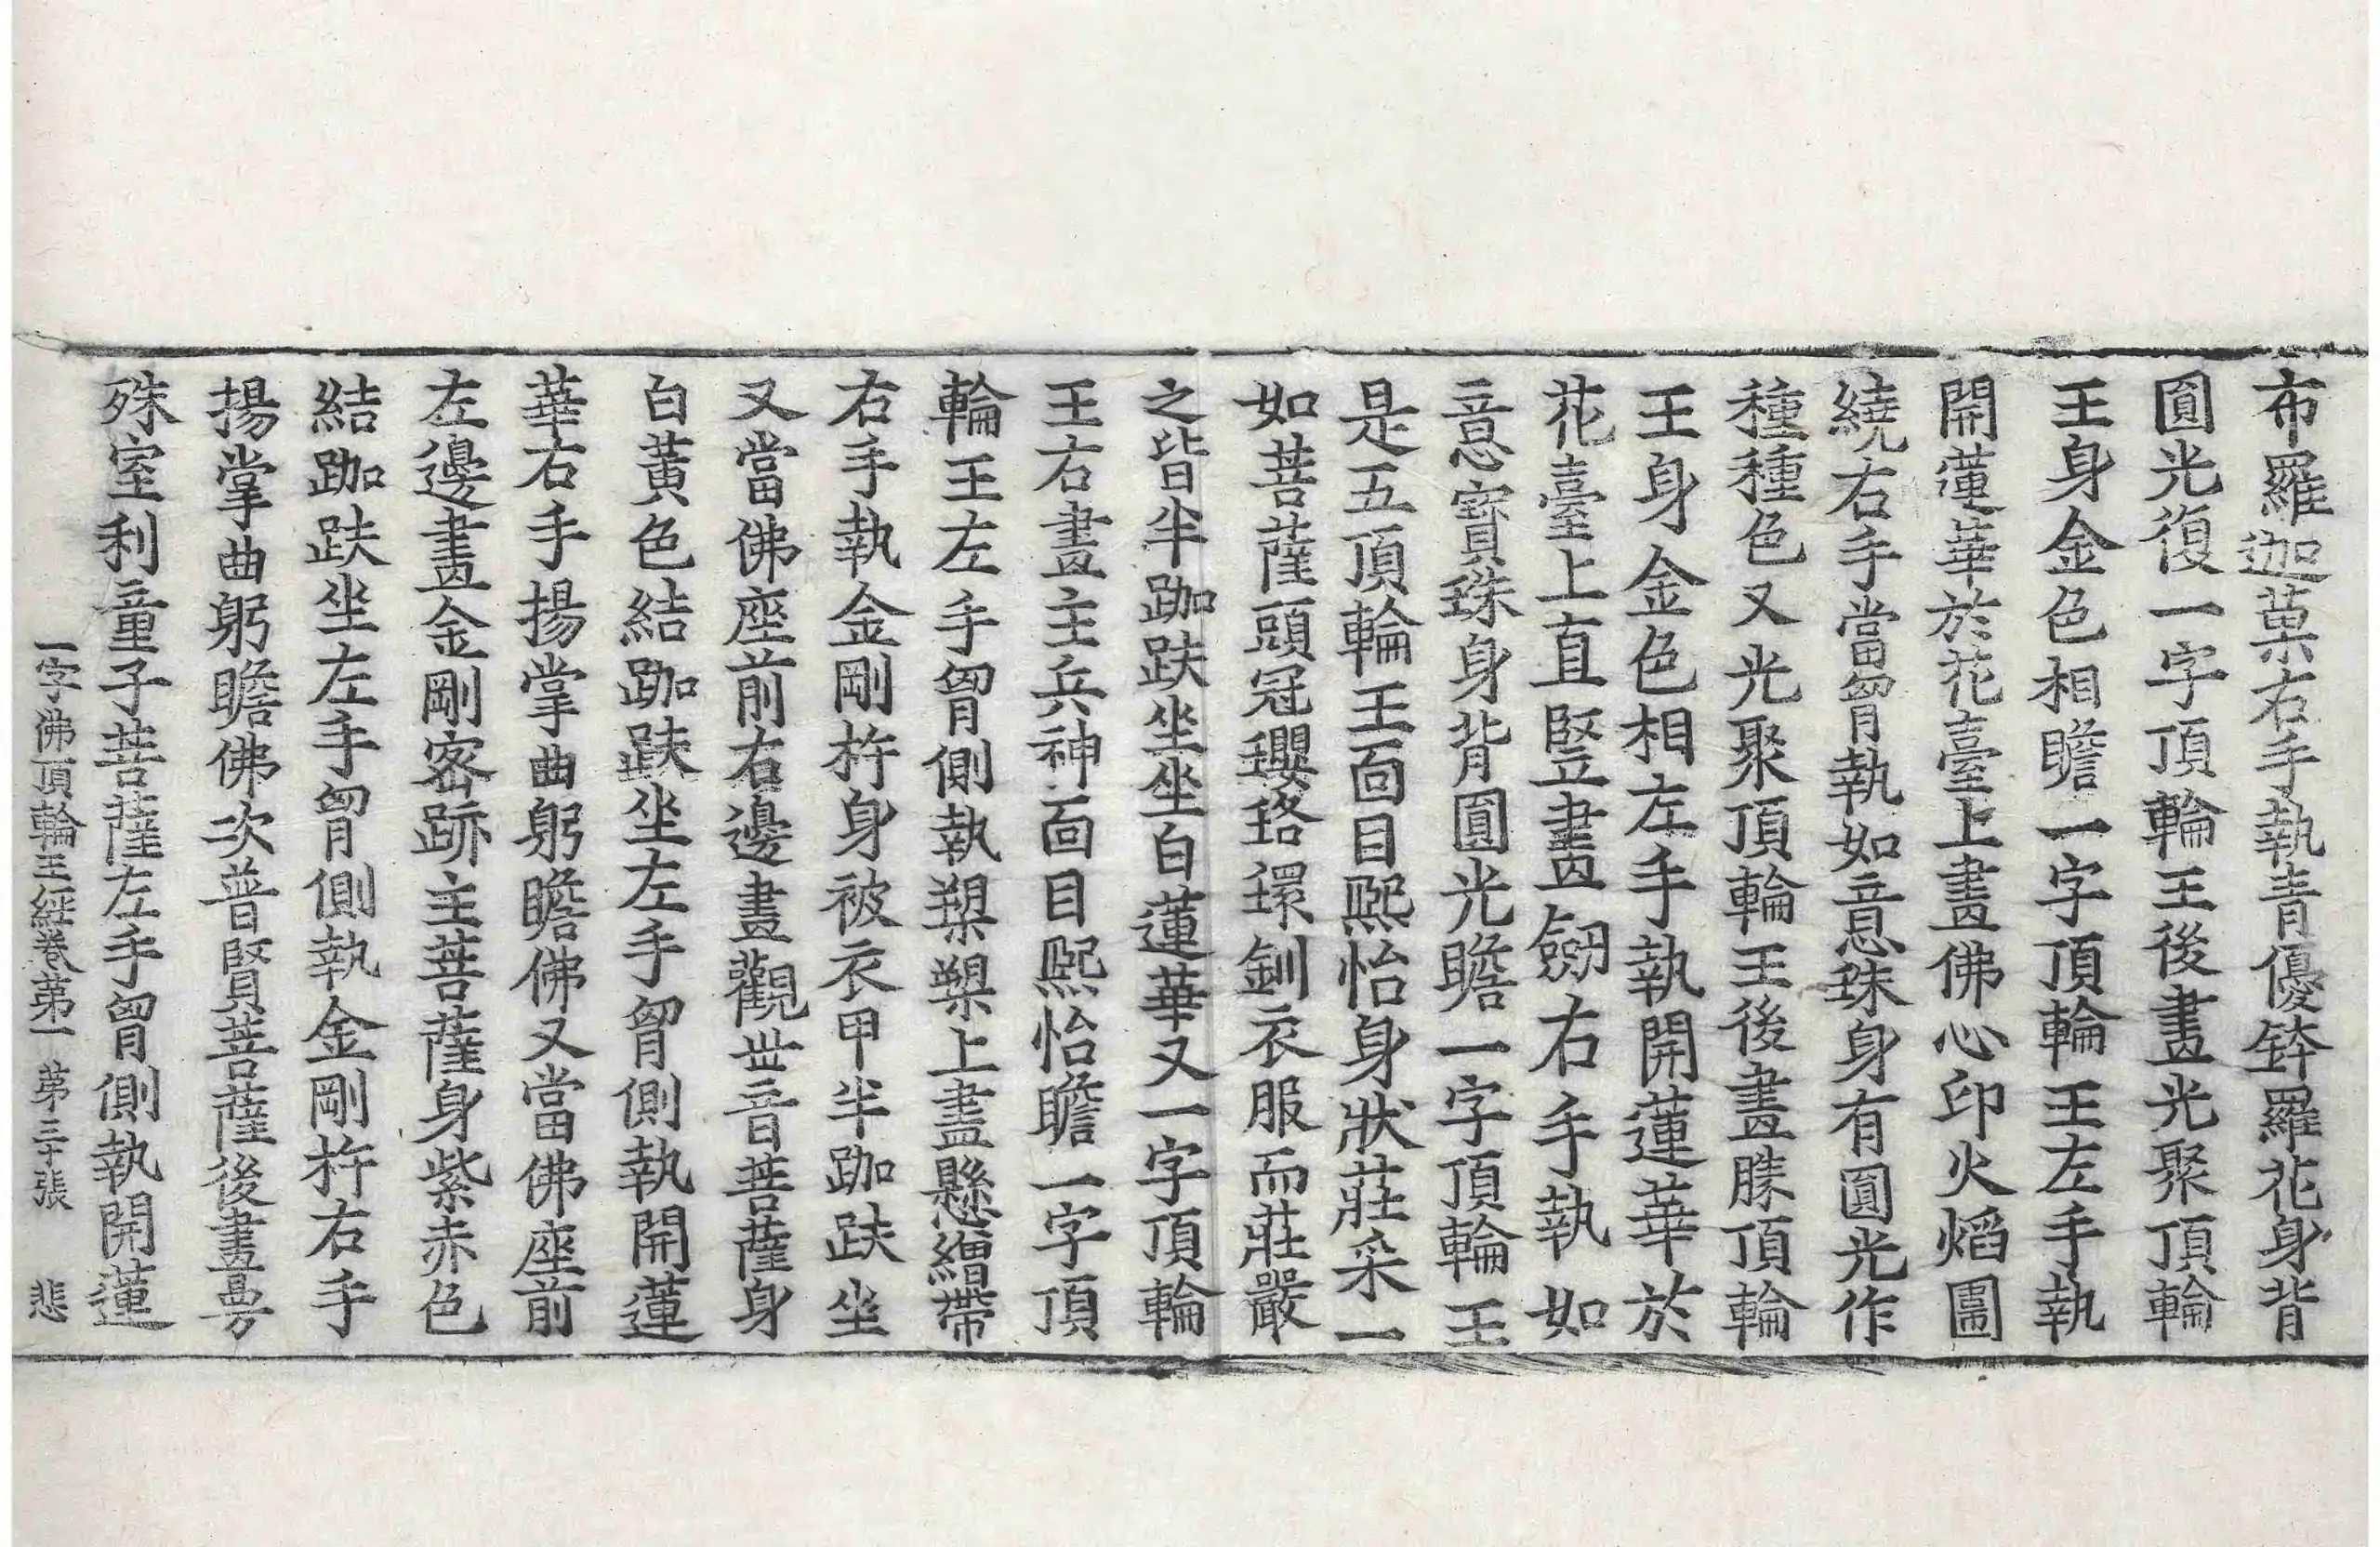 布羅迦菓右手執青優鉢羅花身背
圓光復一字頂輪王後畫光聚頂輪
王身金色相瞻一字頂輪王左手執
開蓮華於花臺上畫佛心印火焰圍
繞右手當胷執如意珠身有圓光作
種種色又光聚頂輪王後畫勝頂輪
王身金色相左手執開蓮華於
花臺上直豎畫劒右手執如
意寶珠身背圓光瞻一字頂輪王
是五頂輪王面目熙怡身狀莊采一
如菩薩頭冠瓔珞環釧衣服而莊嚴
之皆半跏趺坐坐白蓮華又一字頂輪
王右畫主兵神面目熙怡瞻一字頂
輪王左手胷側執槊槊上畫懸繒帶
右手執金剛杵身被衣甲半跏趺坐
又當佛座前右邊畫觀世音菩薩身
白黃色結跏趺坐左手胷側執開蓮
華右手揚掌曲躬瞻佛又當佛座前
左邊畫金剛密跡主菩薩身紫赤色
結跏趺坐左手胷側執金剛杵右手
揚掌曲躬瞻佛次普賢菩薩後畫曼
殊室利童子菩薩左手胷側執開蓮
一字佛頂輪王經卷第一 第三十張 悲